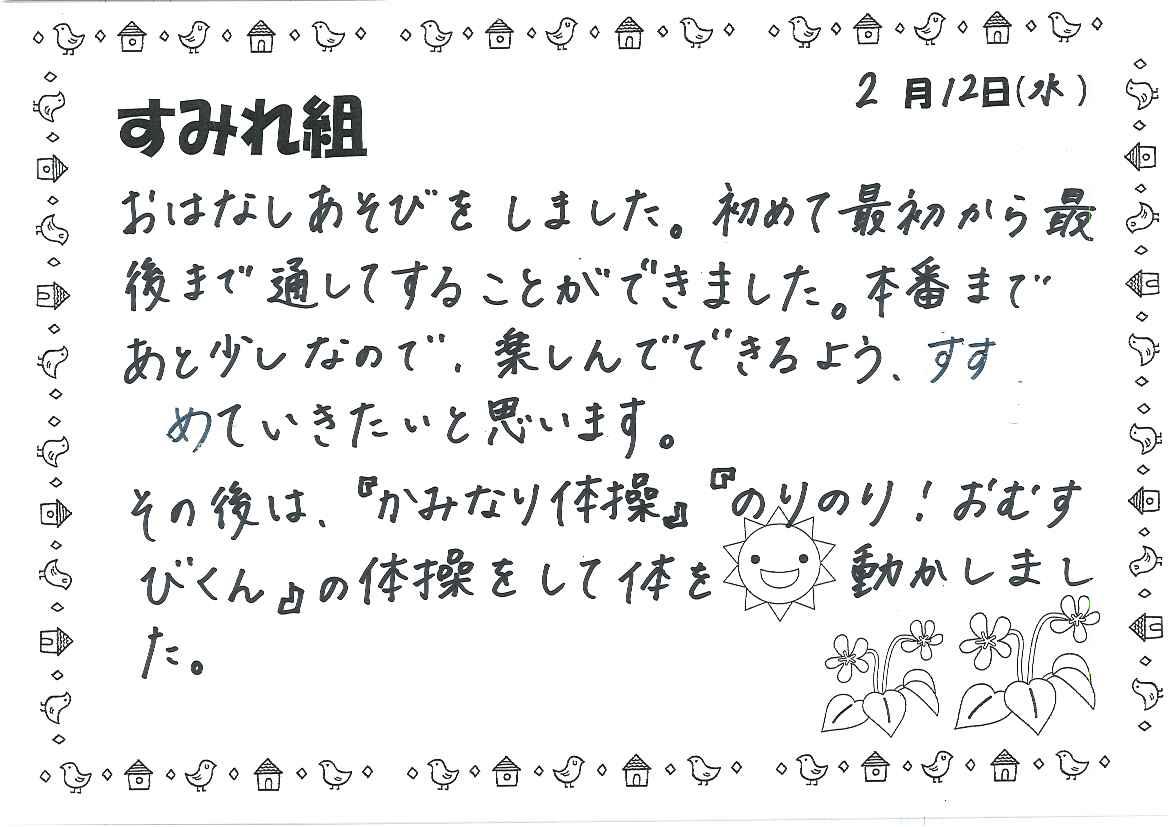 2月12日(水)
すみれ組
おはなしあそびをしました。初めて最初から最
後まで通してすることができました。本番まで
あと少しなので、楽しんでできるよう、すす
めていきたいと思います。
その後は、『かみなり体操』『のりのり！おむす
びくん』の体操をして体を動かしまし
た。